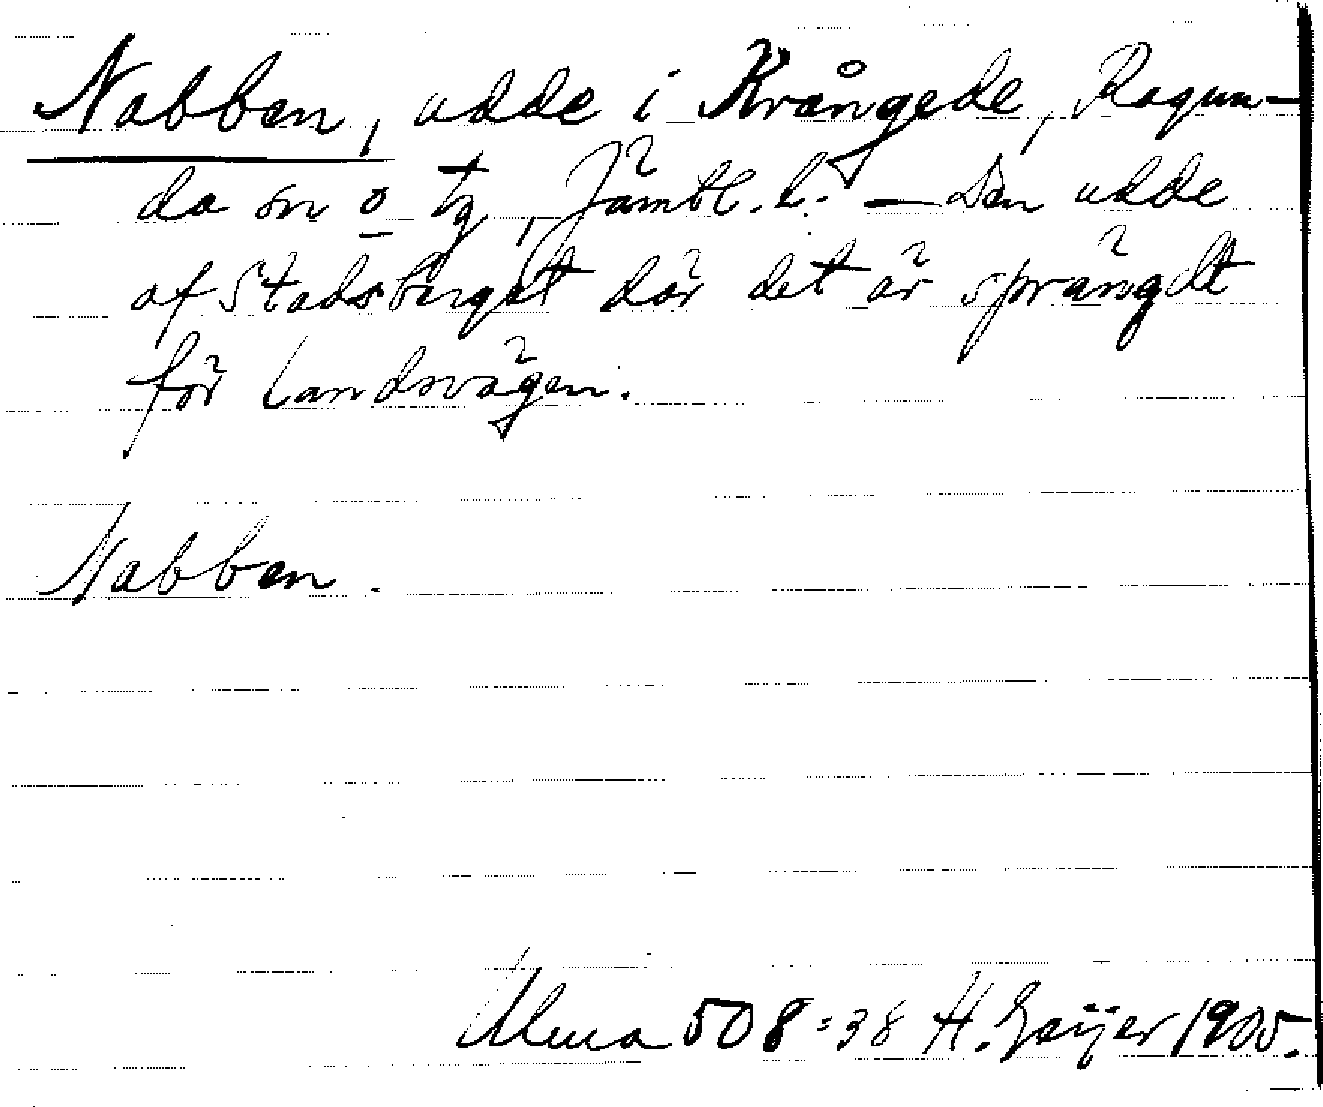 Nabben, udde i Krångede, Ragun-
da sn o tg, Jämtl. l. – Den udde
af Stadsberget där det är sprängdt
för landsvägen.
Nabben.
508:38 H. Geijer 1905.